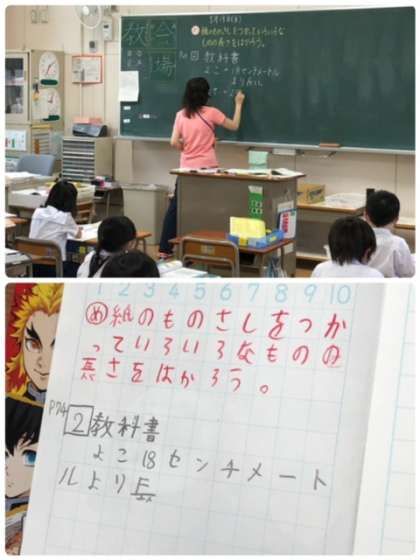 め 紙のものさしをつかっていろいろな
ものの長さをはかろう。
2 教科書
よこ→18センチメートル
より長い
1 2 3 4 5 6 7 8 9 10
め 紙のものさしをつか
っていろいろなものの
長さをはかろう。
P74 2 教科書
よこ 18センチメート
ルより